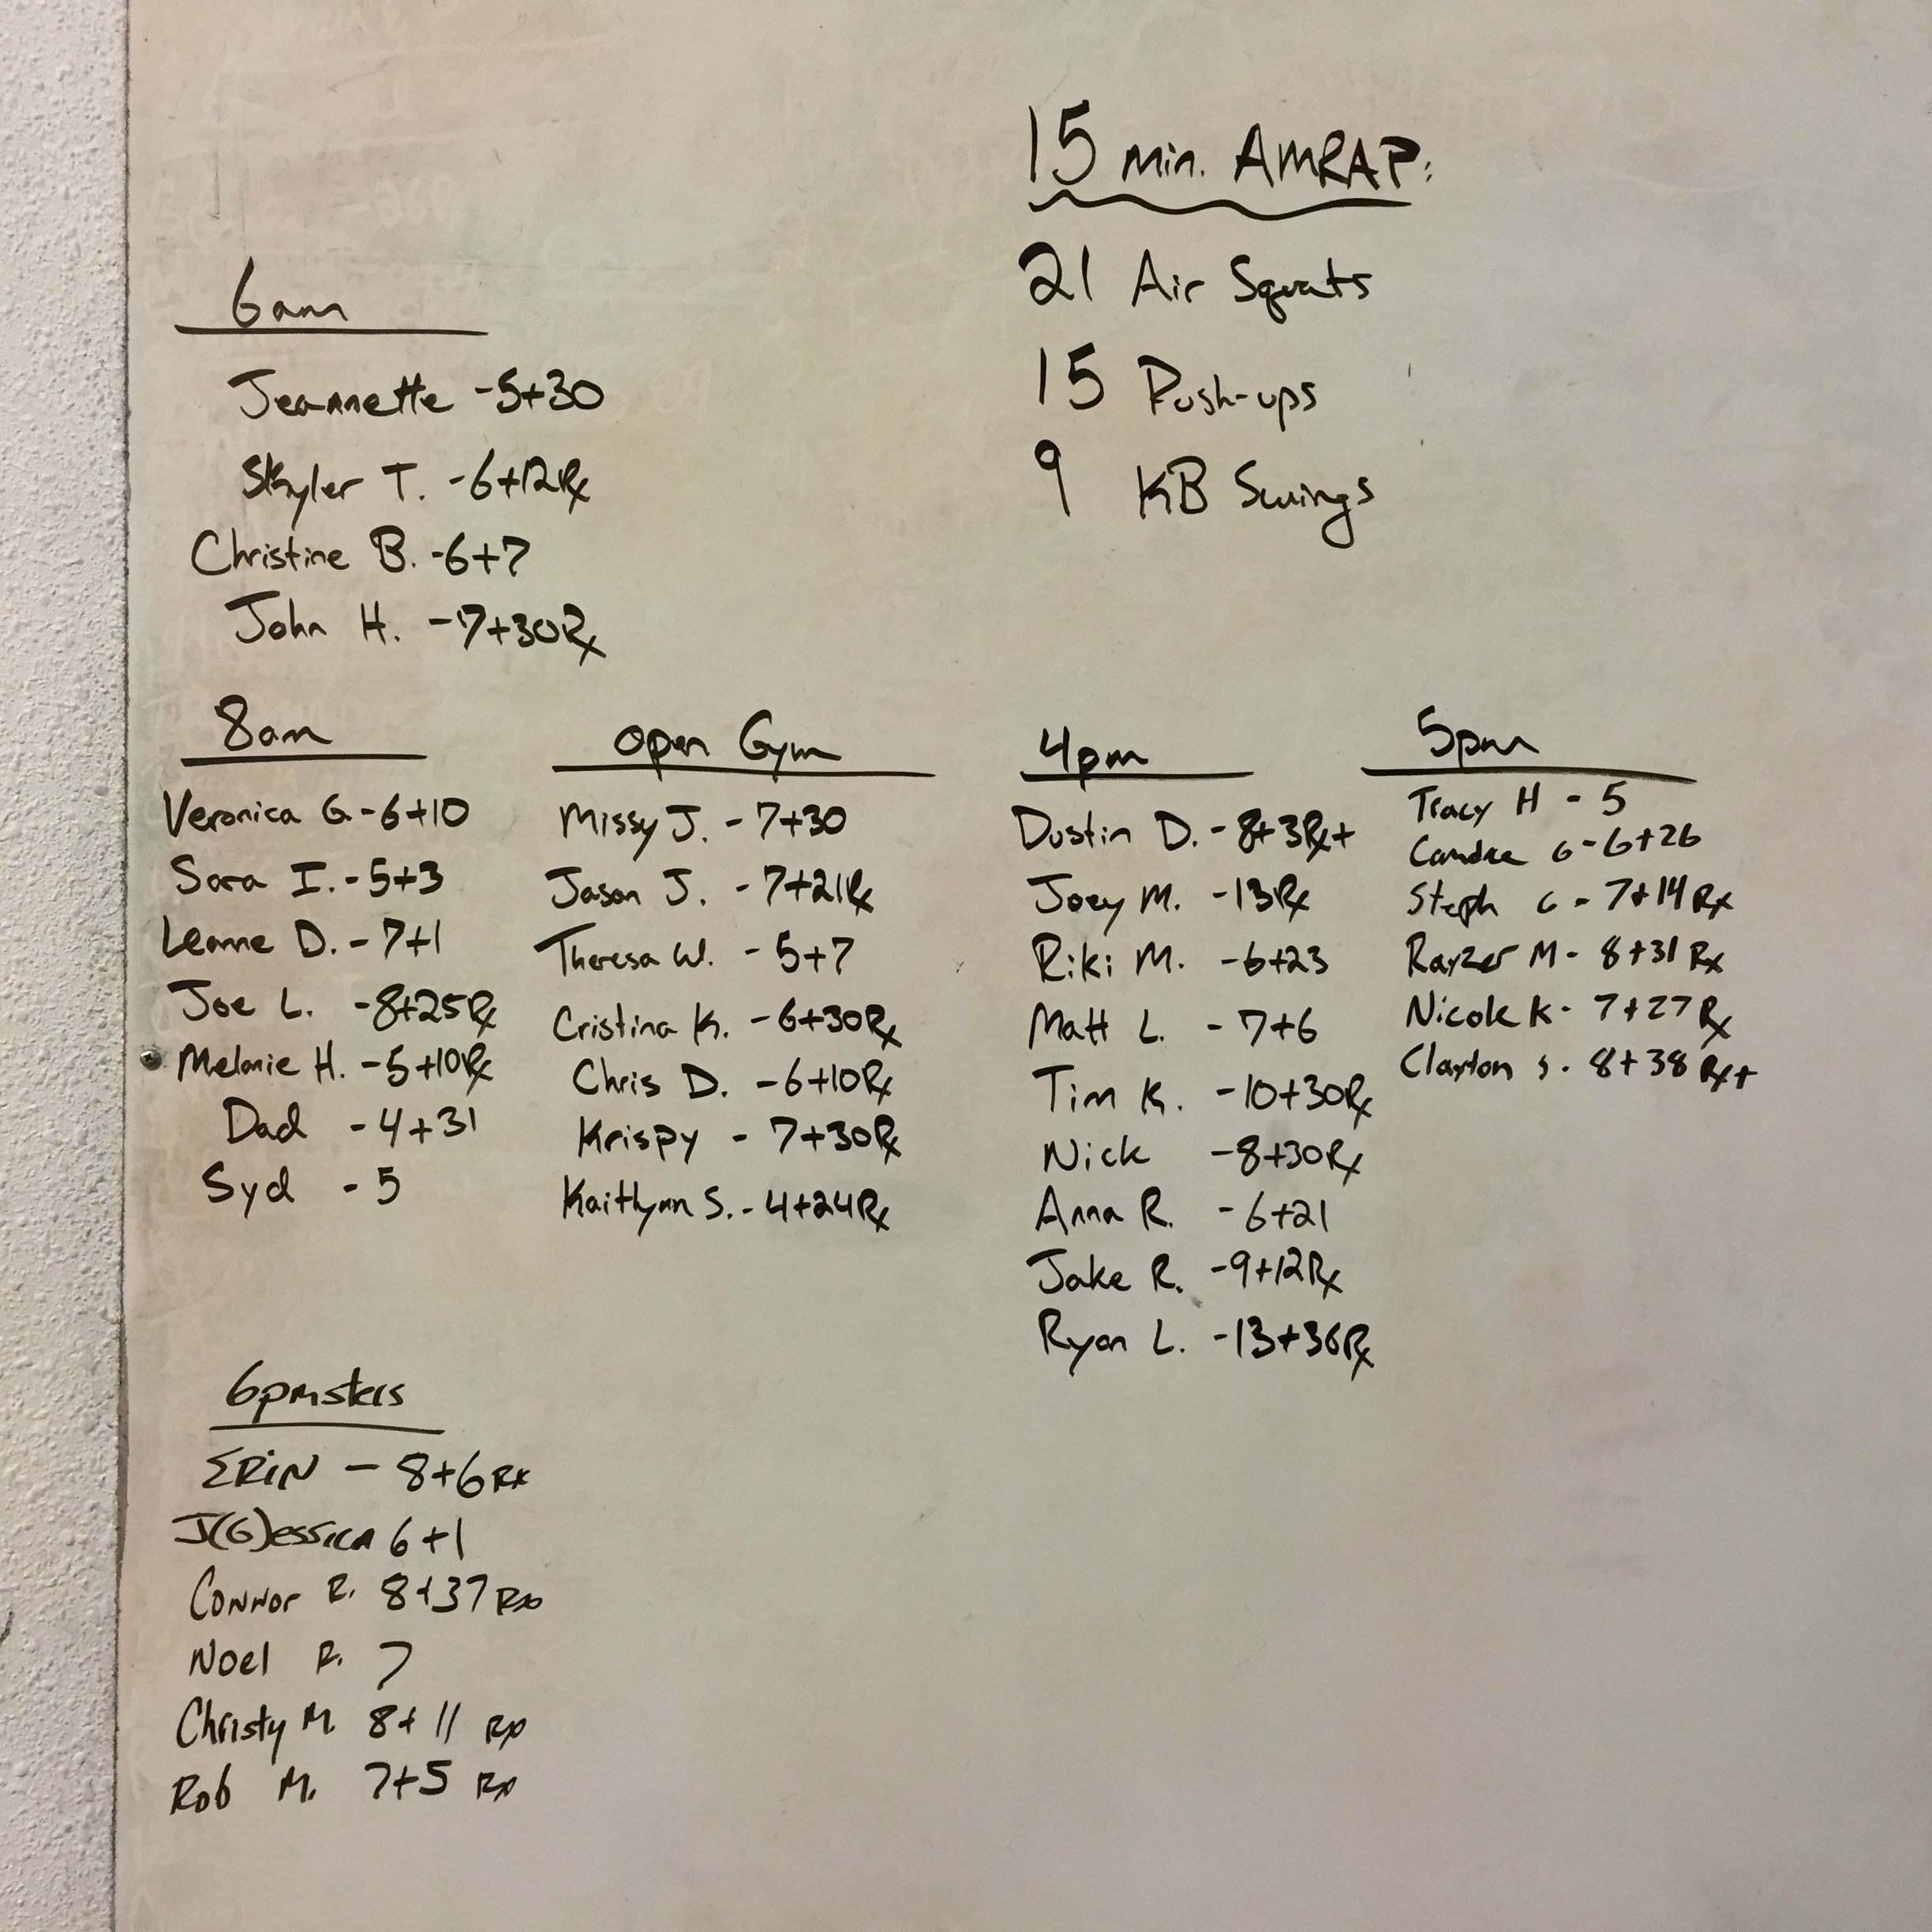 15 min. AMRAP:
21 Air Squats
15 Push-ups
9 KB Swings
6am
Jeannette -5+30
Skyler T. -6+12Rx
Christine B. -6+7
John H. -7+30Rx
8am
Veronica G. -6+10
Sara I. -5+3
Leanne D. -7+1
Joe L. -8+25Rx
Melanie H. -5+10Rx
Dad -4+31
Syd -5
Open Gym
Missy J. -7+30
Jason J. -7+21Rx
Theresa W. -5+7
Cristina K. -6+30Rx
Chris D. -6+10Rx
Krispy - 7+30Rx
Kaitlynn S. -4+24Rx
4pm
Dustin D. -8+3Rx+
Joey M. -13Rx
Riki M. -6+23
Matt L. -7+6
Tim K. -10+30Rx
Nick -8+30Rx
Anna R. -6+21
Jake R. -9+12Rx
Ryan L. -13+36Rx
5pm
Tracy H - 5
Candice G -6+26
Steph C - 7+14 Rx
Rayzer M - 8+31 Rx
Nicole K - 7+27 Rx
Clayton S. 8+38 Rx+
6pmsters
ERIN - 8+6 Rx
J(G)essica 6+1
Connor R. 8+37 Rx
Noel R. 7
Christy M. 8+11 Rx
Rob M. 7+5 Rx